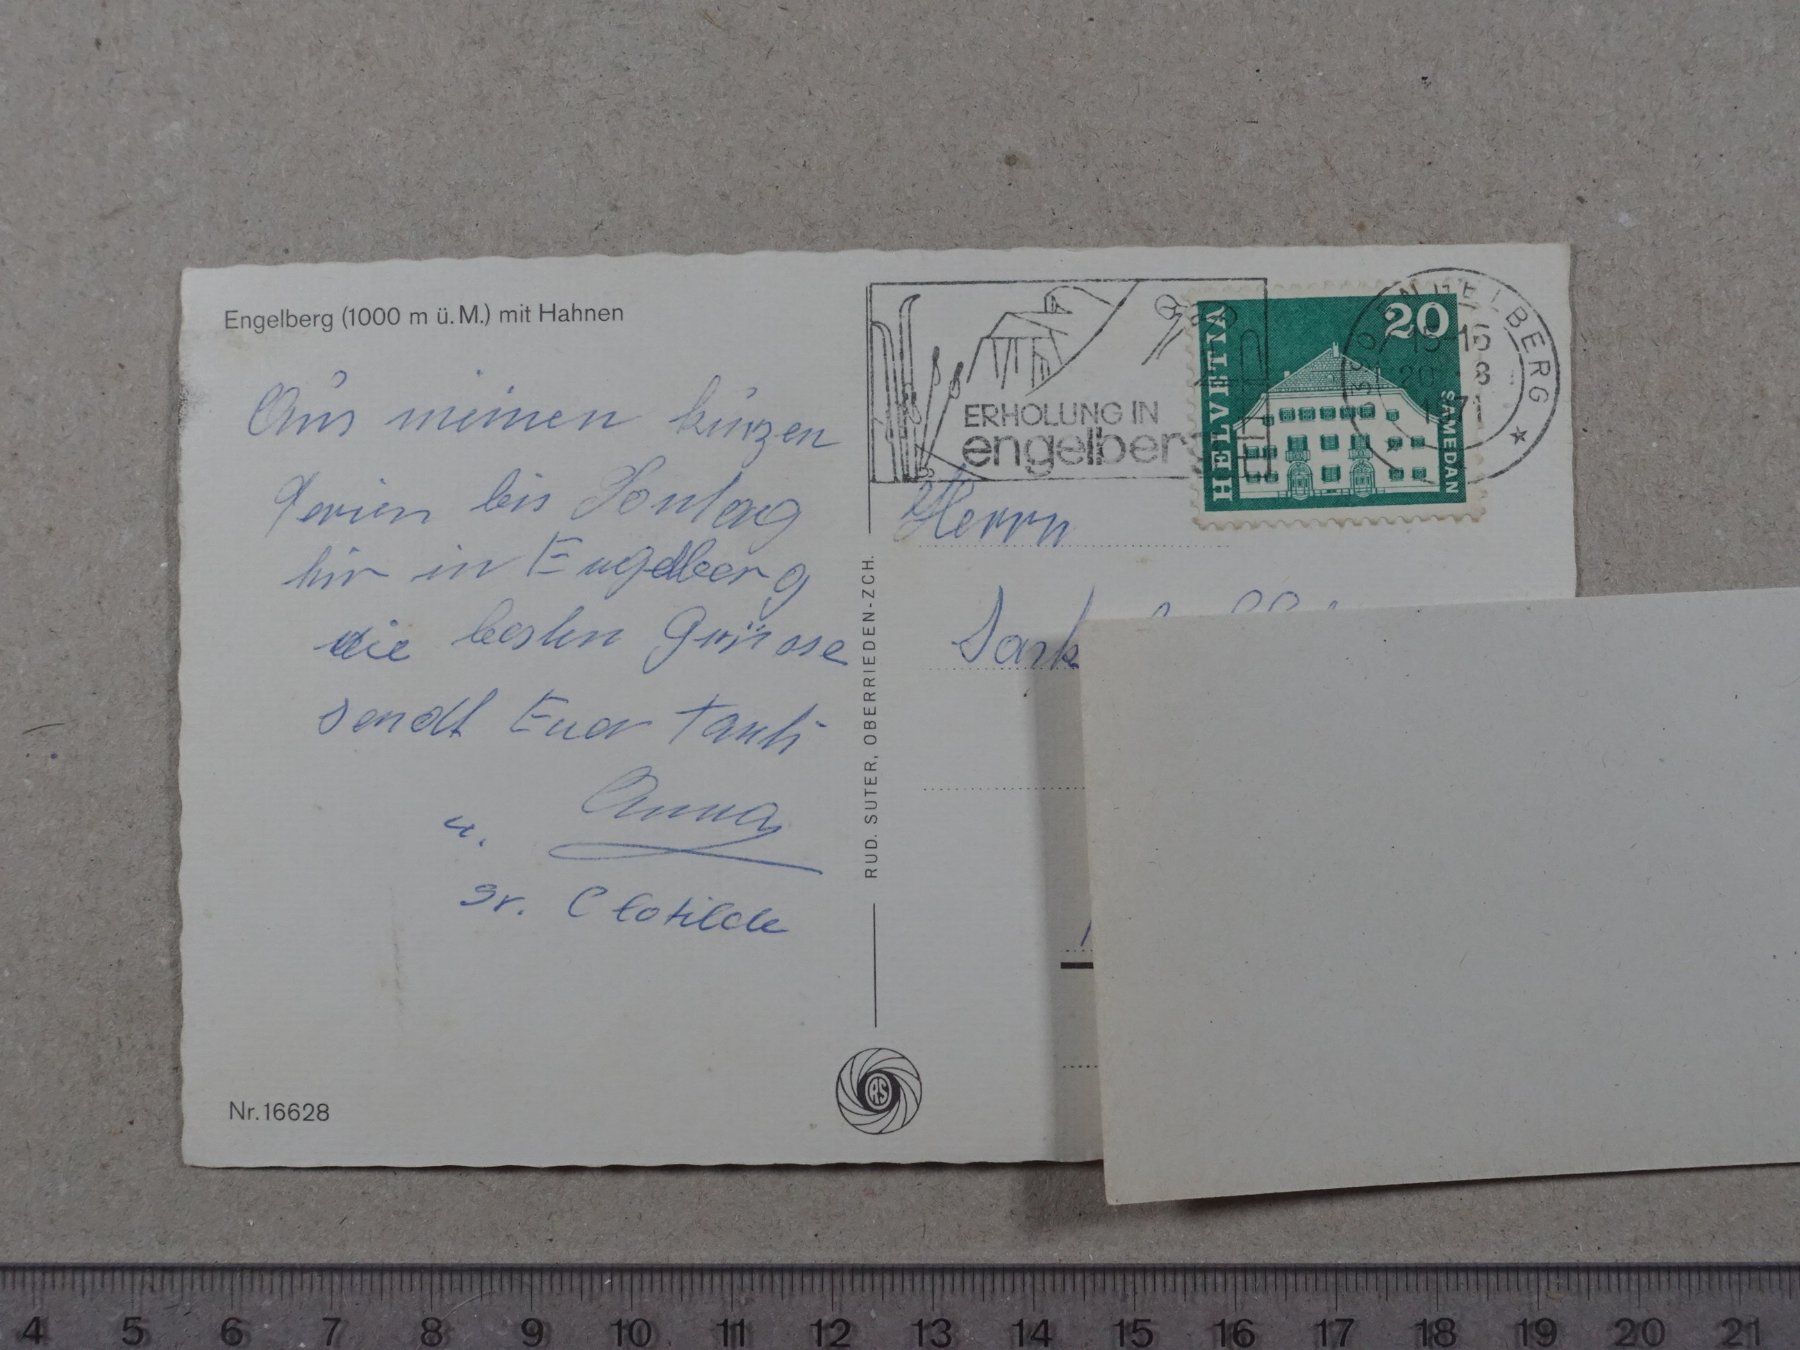 Engelberg (1000 m ü. M.) mit Hahnen
Aus meinen kurzen
Ferien bis Sontag
hir in Engelberg
die besten Grüsse
sendt Euer Tanti
Anna
u.
Sr. Clotilde
Nr. 16628
RUD. SUTER, OBERRIEDEN-ZCH.
RS
ERHOLUNG IN
engelberg
HELVETIA
20
SAMEDAN
ENGELBERG
15-16
20 8
71
Herrn
4 5 6 7 8 9 10 11 12 13 14 15 16 17 18 19 20 21